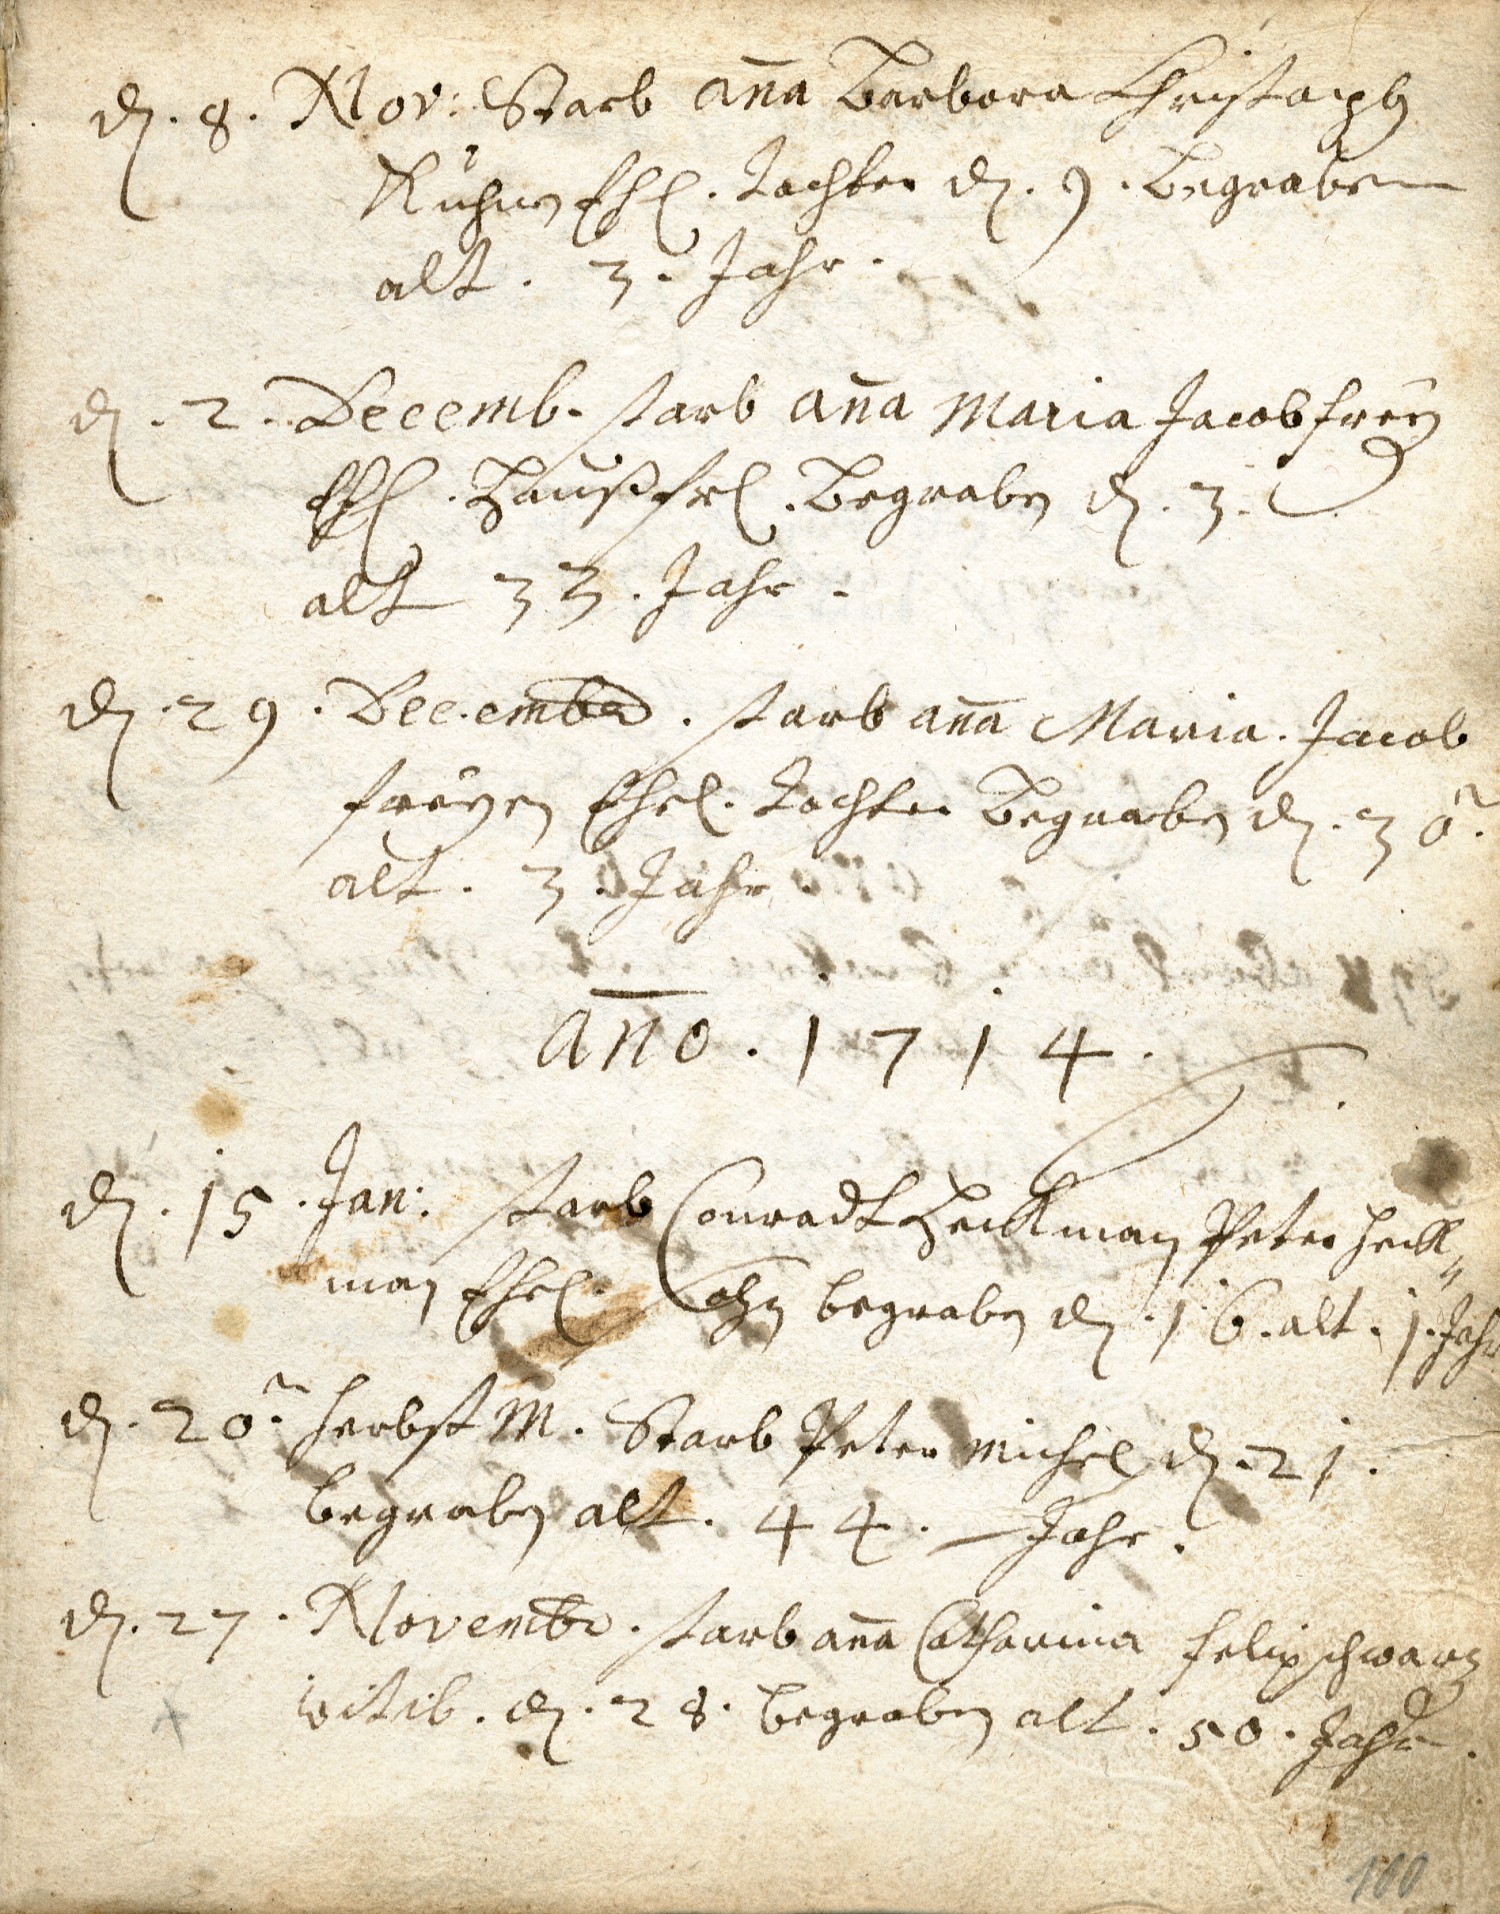 dn. 8. Nov: Starb aña Barbara Christoph
Kuhnen Ehl. Tochter dn. 9. Begraben
alt. 3. Jahr.
dn. 2. Decemb. starb aña Maria Jacob freÿ
Ehl. Haußfrl. Begraben dn. 3.
alt 33. Jahr.
dn. 29. December. starb aña Maria. Jacob
freÿen Ehel. Tochter Begraben dn. 30.
alt. 3. Jahr
Año. 1714.
dn. 15. Jan: starb Conradt Heckman Peter Heck„
man Ehel. Sohn begraben dn. 16. alt. 1. Jahr
dn. 20. herbst M. Starb Peter Michel dn. 21.
begraben alt. 44. Jahr.
dn. 27. Novembr. starb aña Catharina felix schwarz
witib. dn. 28. begraben alt. 50. Jahr.
100